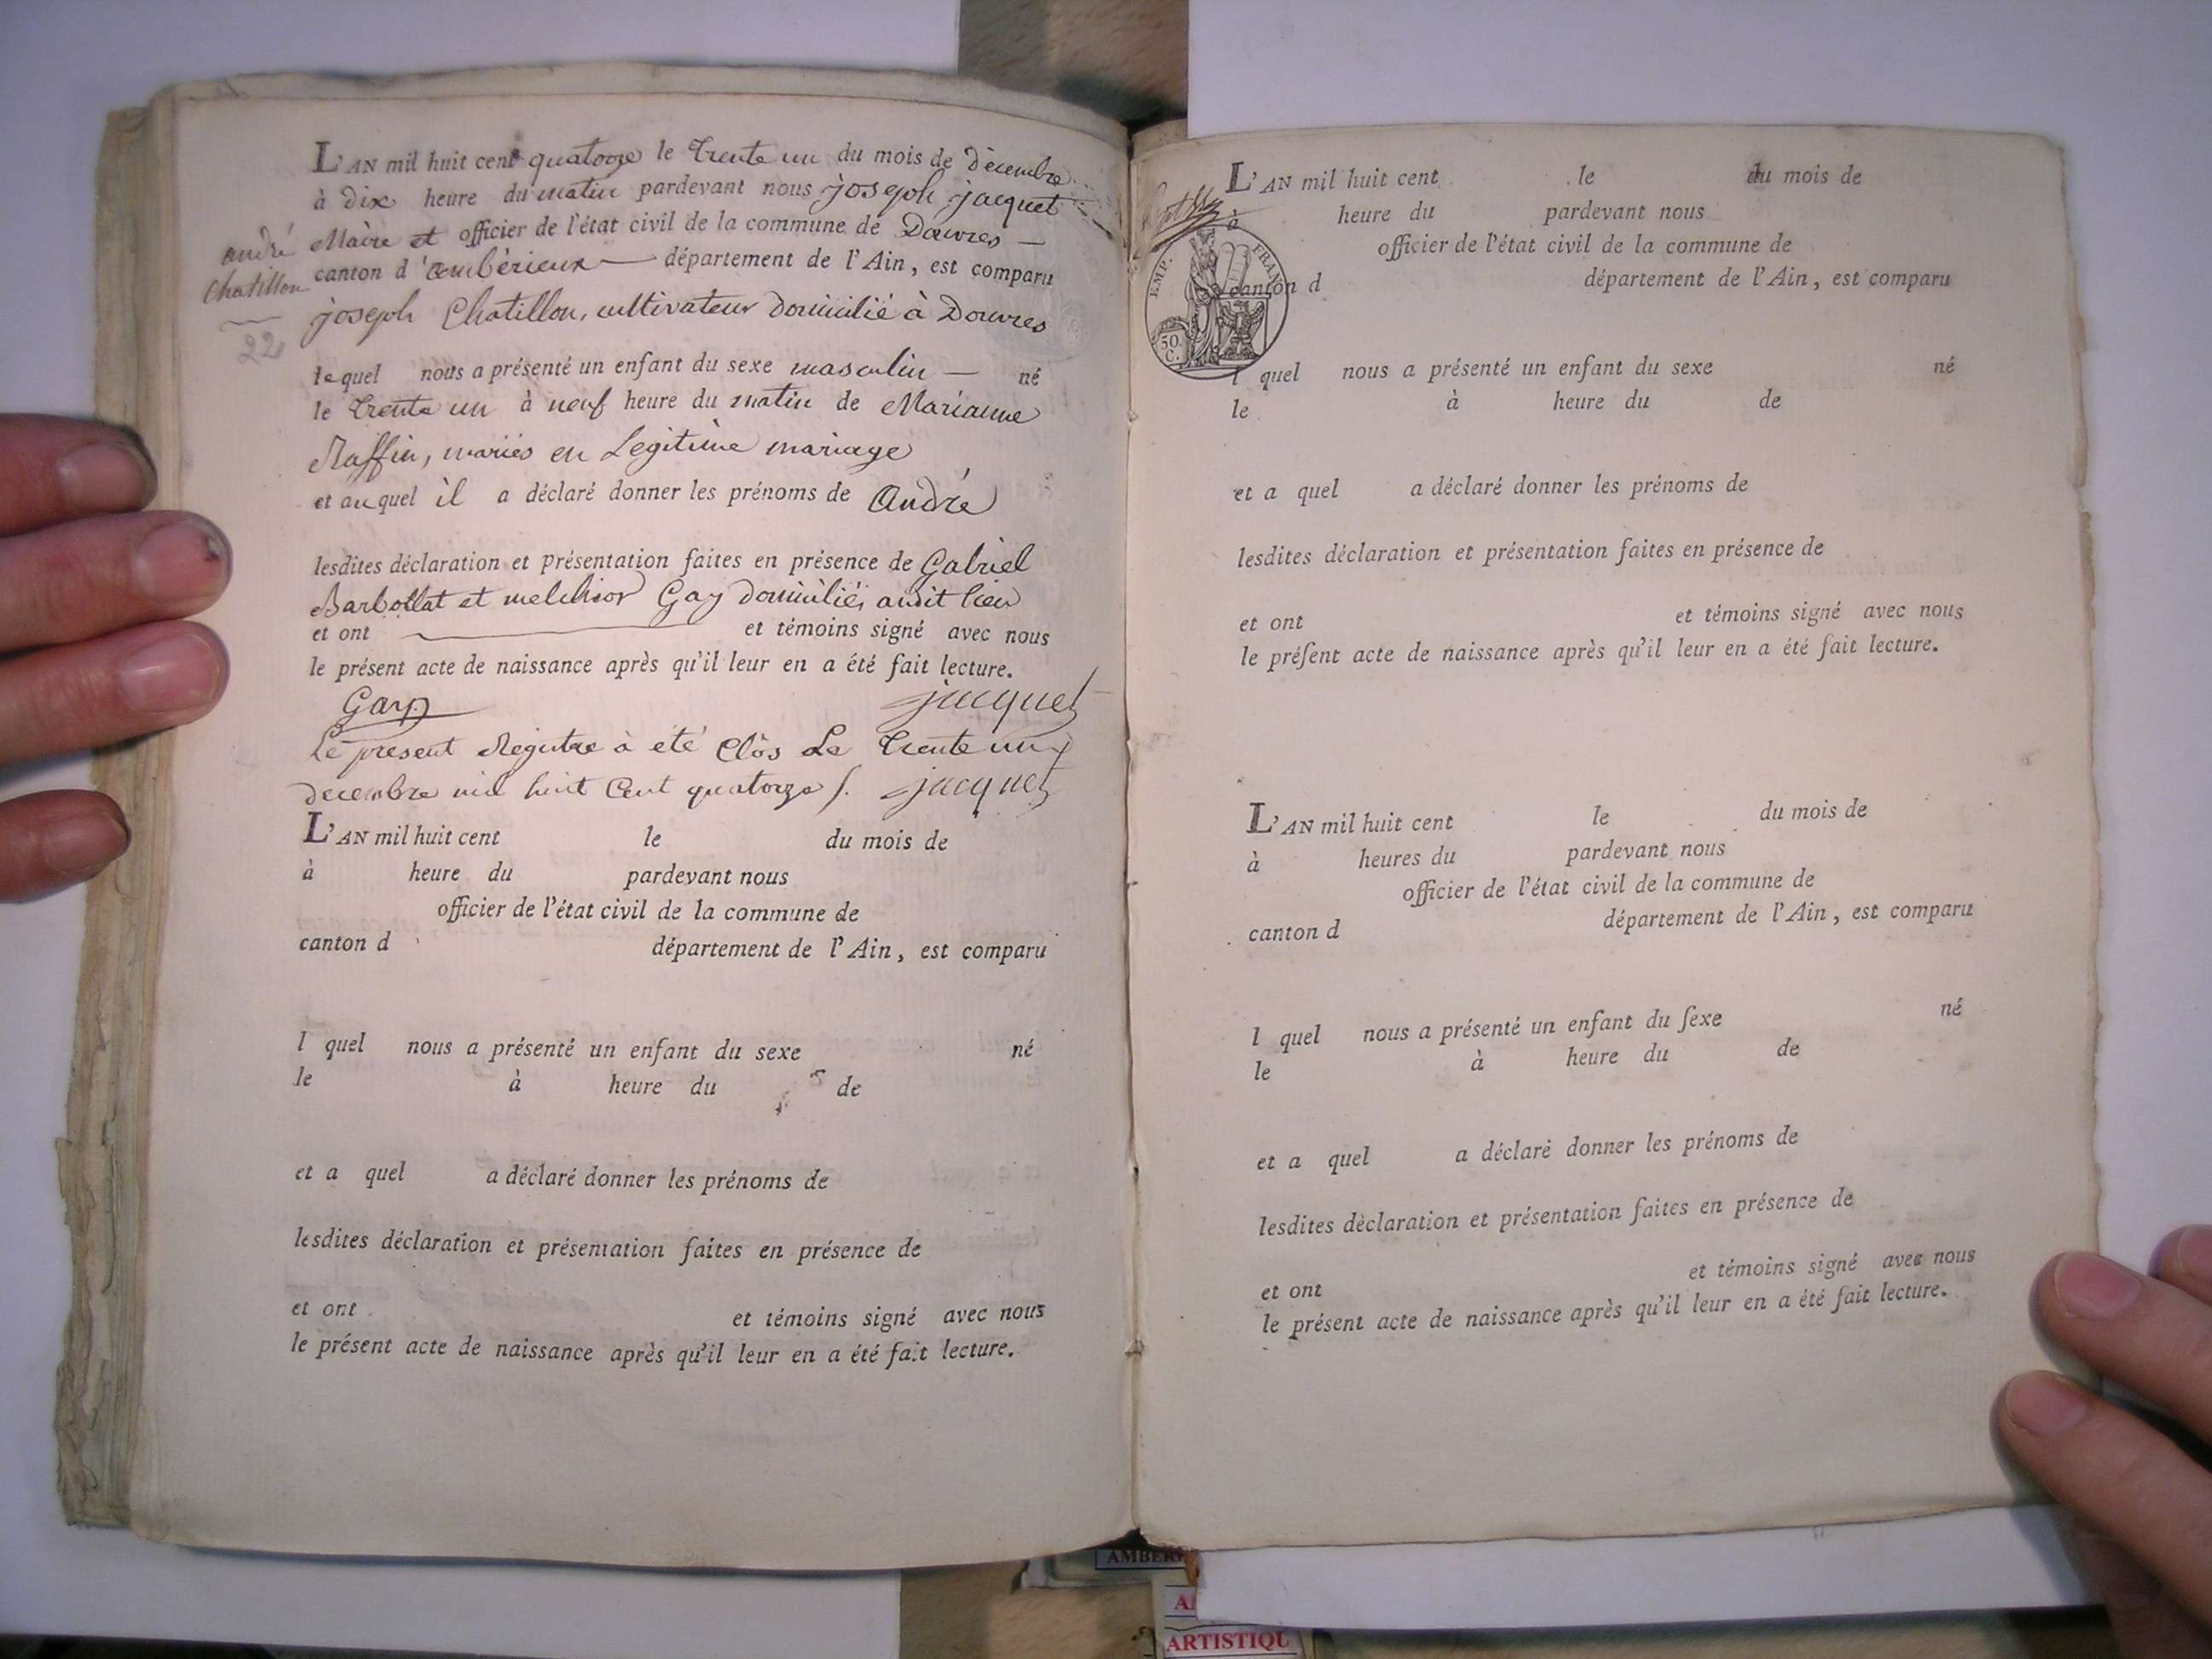 L'AN mil huit cent quatorze le trente un du mois de décembre
à dix heure du matin pardevant nous joseph jacquet
Maire et officier de l'état civil de la commune de Douvres —
canton d'ambérieux — département de l'Ain, est comparu
joseph Chatillon, cultivateur domicilié à Douvres
andré
Chatillon
22
lequel nous a présenté un enfant du sexe masculin — né
le trente un à neuf heure du matin de Marianne
Raffin, mariés en Legitime mariage
et auquel il a déclaré donner les prénoms de André
lesdites déclaration et présentation faites en présence de Gabriel
Barbollat et melchior Gay domiciliés audit lieu
et ont — et témoins signé avec nous
le présent acte de naissance après qu'il leur en a été fait lecture.
Gay jacquet
Le present Registre à été Clos Le trente un
decembre mil huit Cent quatorze /. jacquet
L'AN mil huit cent le du mois de
à heure du pardevant nous
officier de l'état civil de la commune de
canton d département de l'Ain, est comparu
l quel nous a présenté un enfant du sexe né
le à heure du de
et a quel a déclaré donner les prénoms de
lesdites déclaration et présentation faites en présence de
et ont et témoins signé avec nous
le présent acte de naissance après qu'il leur en a été fait lecture.
L'AN mil huit cent le du mois de
à heure du pardevant nous
officier de l'état civil de la commune de
EMP. FRAN
50.
C.
canton d département de l'Ain, est comparu
l quel nous a présenté un enfant du sexe né
le à heure du de
et a quel a déclaré donner les prénoms de
lesdites déclaration et présentation faites en présence de
et ont et témoins signé avec nous
le préſent acte de naissance après qu'il leur en a été fait lecture.
L'AN mil huit cent le du mois de
à heures du pardevant nous
officier de l'état civil de la commune de
canton d département de l'Ain, est comparu
l quel nous a présenté un enfant du ſexe né
le à heure du de
et a quel a déclaré donner les prénoms de
lesdites dèclaration et présentation faites en présence de
et ont et témoins signé avec nous
le présent acte de naissance après qu'il leur en a été fait lecture.
AMBER
A
ARTISTIQU